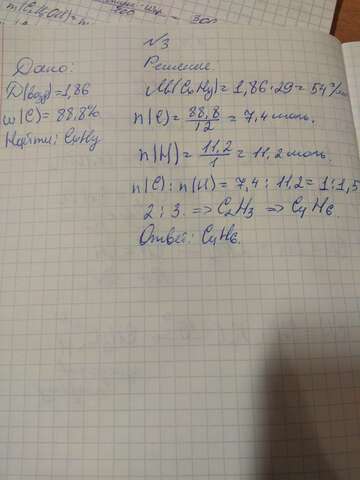 N3
Дано:
D(возд)=1,86
w(C)=88,8%
Найти: CxHy
Решение
M(CxHy)=1,86·29=54 г/моль
n(C)=88,8/12=7,4 моль.
n(H)=11,2/1=11,2 моль.
n(C):n(H)=7,4:11,2=1:1,5
2:3. => C2H3 => C4H6.
Ответ: C4H6.